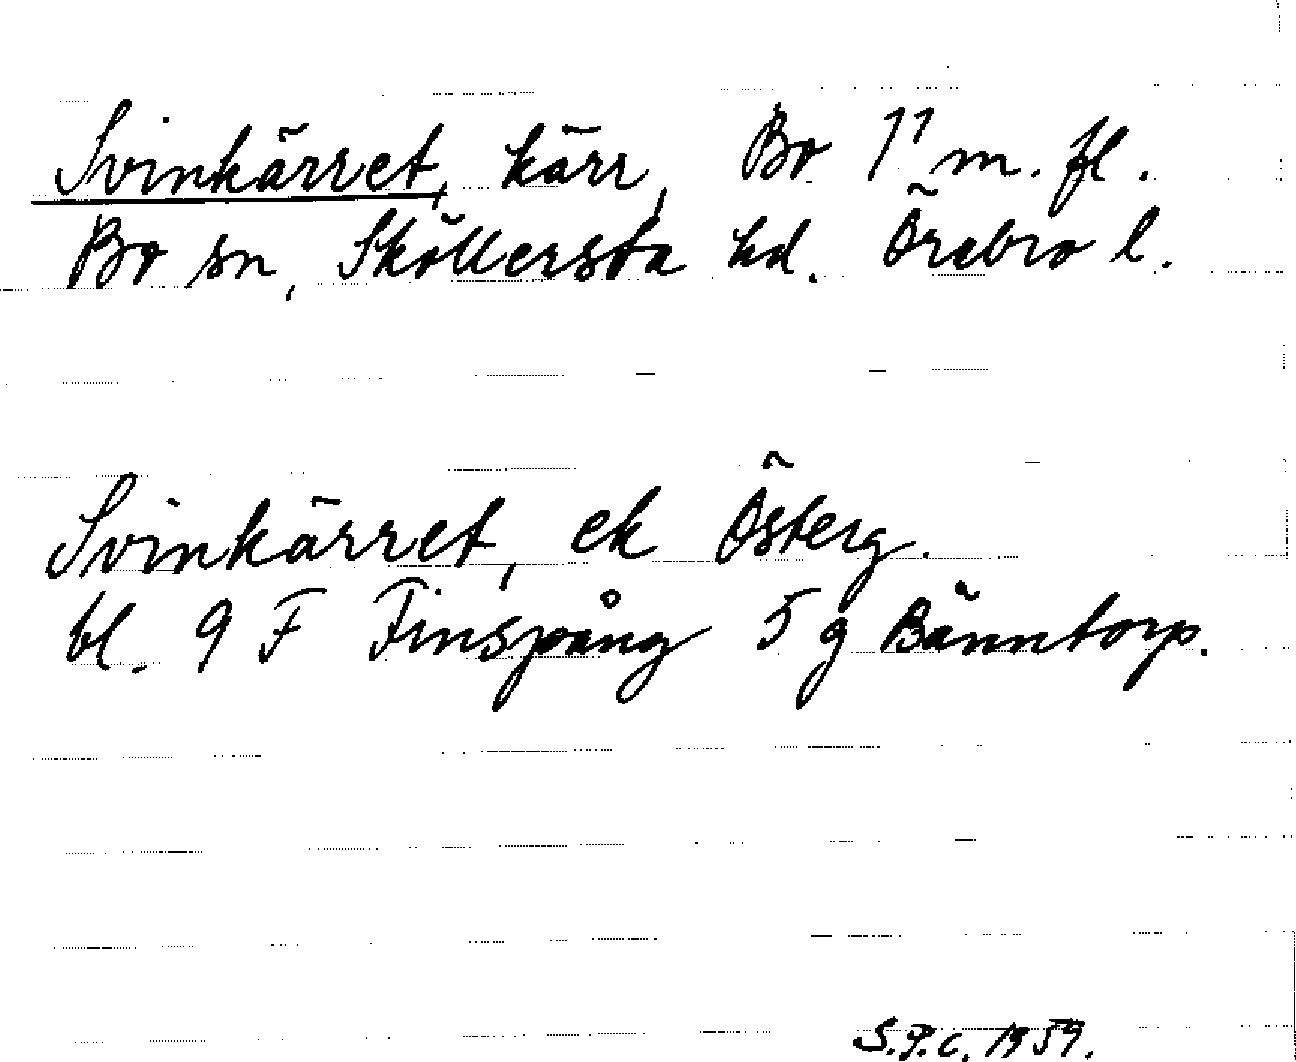 Svinkärret, kärr, Bo 1¹ m. fl.
Bo sn, Sköllersta hd. Örebro l.
Svinkärret, ek Österg.
bl. 9 F Finspång 5 g Bänntorp.
S.P.C. 1959.